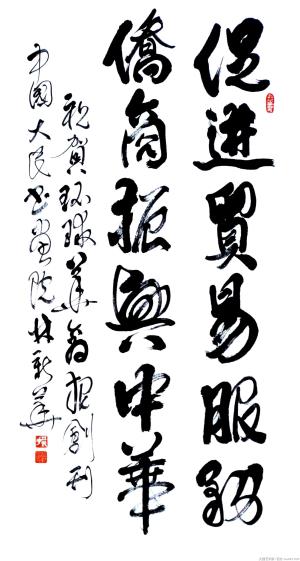 促進貿易服務
僑商振興中華
祝賀環球華商報創刊
中國大民書畫院林新華